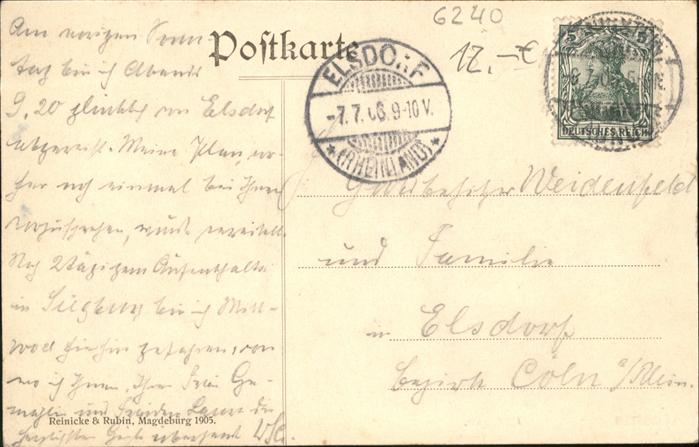 6240
12.-€
Postkarte
ELSDORF
-7.7.06.9-10V.
* (RHEINLAND) *
5 5
DEUTSCHES REICH
Am vorigen Sonn-
tag bin ich Abends
9.20 glücklich von Elsdorf
abgereist. Meine Plan, vor-
her noch einmal bei Ihnen
vorzusprechen, wurde vereitelt.
Nach 2tägigem Aufenthalte
in Siegburg bin ich Mitt-
woch hierhin gefahren, von
wo ich Ihnen, Ihrer Frau Ge-
mahlin und
herzlichsten Grüße
Gutsbesitzer Weidenfeld
und Familie
in Elsdorf
Bezirk Cöln a/Rhein.
Reinicke & Rubin, Magdeburg 1905.